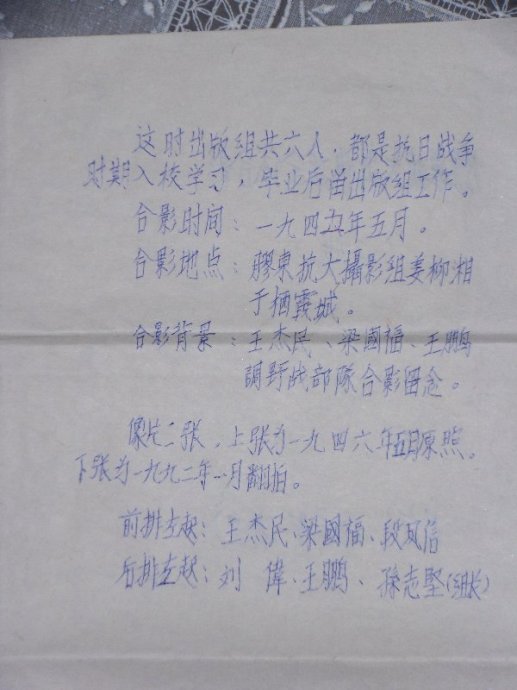 这时出版组共六人，都是抗日战争
时期入校学习，毕业后留出版组工作。
合影时间：一九四五年五月。
合影地点：膠東抗大攝影组姜柳湘
于栖霞城。
合影背景：王杰民、梁國福、王鵬
調野战部隊合影留念。
像片二张，上张为一九四六年五月原照。
下张为一九九二年一月翻拍。
前排左起：王杰民、梁國福、段凤信
后排左起：刘 偉、王鵬、孫志堅(组长)